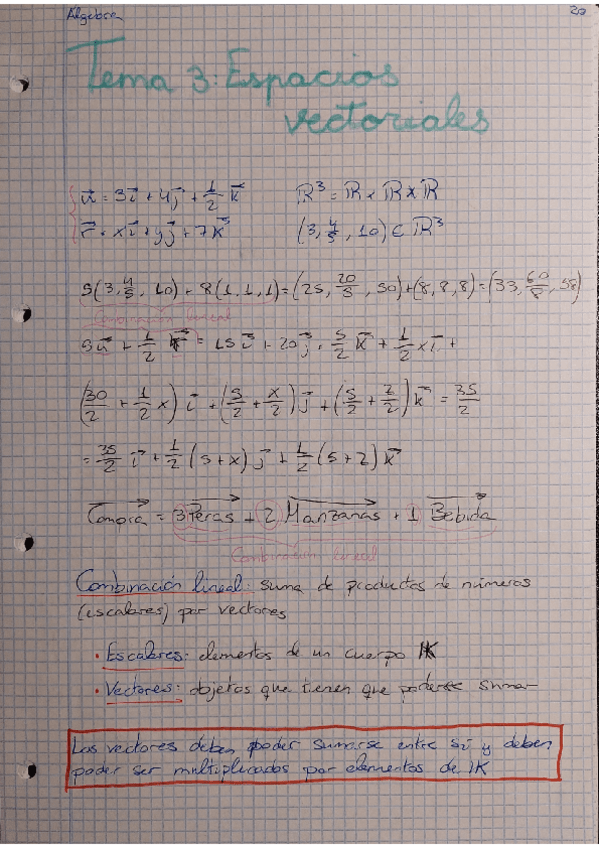 Álgebra 20
Tema 3: Espacios
vectoriales
u⃗ = 3i⃗ + 4j⃗ + 1/2 k⃗ ℝ³ = ℝ x ℝ x ℝ
r⃗ = xi⃗ + yj⃗ + 7k⃗ (3, 4/5, 10) ∈ ℝ³
5(3, 4/5, 10) + 8(1, 1, 1) = (25, 20/5, 50) + (8, 8, 8) = (33, 60/5, 58)
Combinación lineal
5u⃗ + 1/2 r⃗ = 15i⃗ + 20j⃗ + 5/2 k⃗ + 1/2 xi⃗ +
(30/2 + 1/2 x) i⃗ + (5/2 + x/2) j⃗ + (5/2 + 2/2) k⃗ = 35/2
= 35/2 i⃗ + 1/2 (5+x) j⃗ + 1/2 (5+2) k⃗
Compra = 3 Peras + 2 Manzanas + 1 Bebida
Combinación lineal
Combinación lineal: suma de productos de números
(escalares) por vectores
• Escalares: elementos de un cuerpo K
• Vectores: objetos que tienen que poderse sumar
Los vectores deben poder sumarse entre sí y deben
poder ser multiplicados por elementos de K